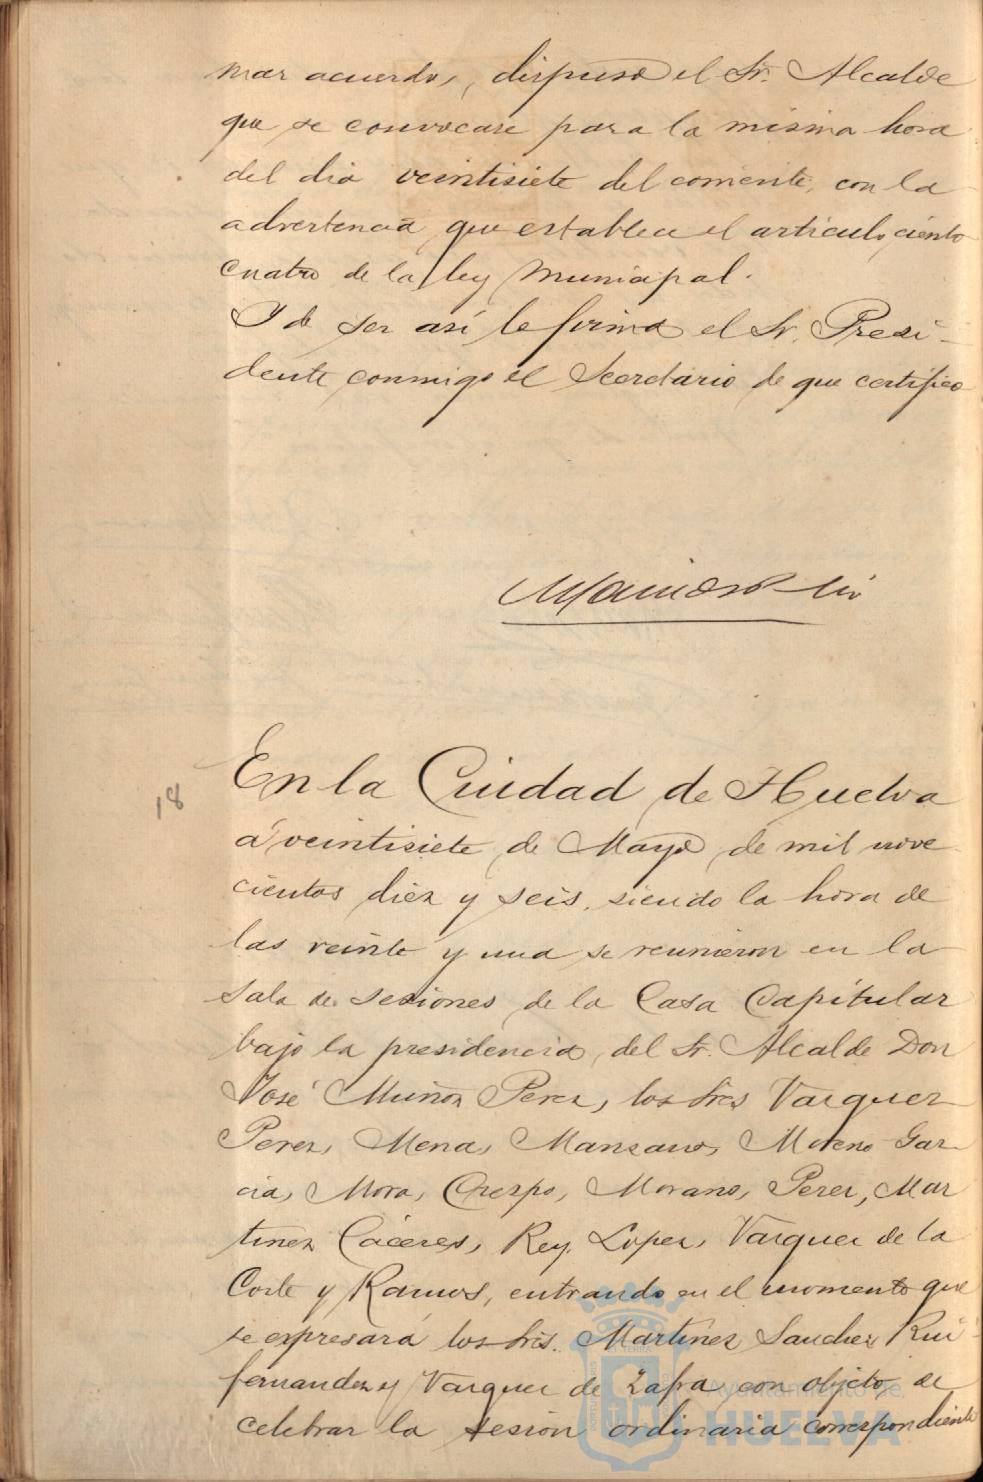 mar acuerdo, dispuso el Sr. Alcalde
que se convocase para la misma hora
del dia veintisiete del corriente, con la
advertencia que establece el articulo ciento
cuatro de la ley Municipal.
Y de ser así le firma el Sr. Presi-
dente conmigo el Secretario de que certifico
18
En la Ciudad de Huelva
á veintisiete de Mayo de mil nove
cientos diez y seis, siendo la hora de
las veinte y una se reunieron en la
Sala de Sesiones de la Casa Capitular
bajo la presidencia, del Sr. Alcalde Don
José Muñoz Perez, los Sres Vazquez
Perez, Mena, Manzano, Moreno Gar-
cia, Mora, Crespo, Morano, Perez, Mar
tinez Cáceres, Rey, Lopez, Vazquez de la
Corte y Ramos, entrando en el momento que
se expresará los Sres. Martinez Sanchez, Rui
fernandez y Vazquez de Zafra con objeto de
celebrar la sesion ordinaria correspondiente
Ayuntamiento de
HUELVA